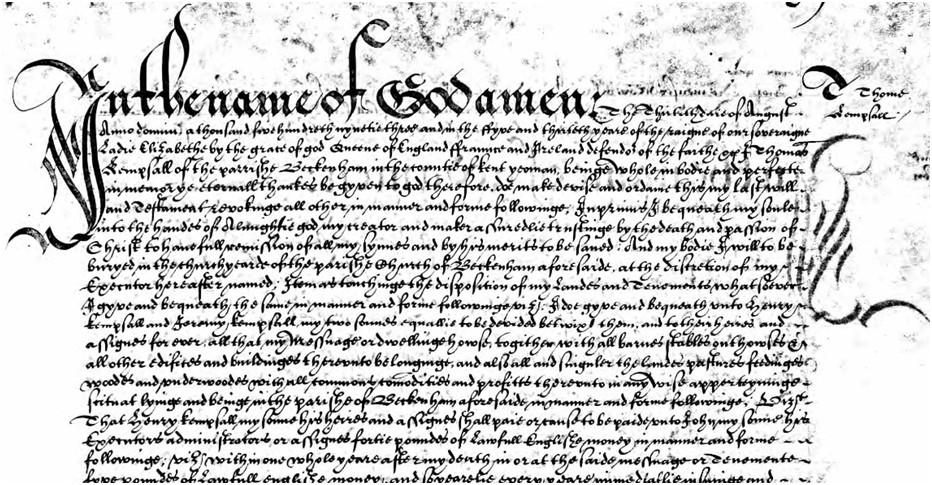 In the name of God amen; The Thirdd daie of August
Thome
Kempsall
Anno domini a thousand fyve hundreth nynetie three and in the ffyve and thirteth yeare of the raigne of our soveraigne
Ladie Elizabethe by the grace of god Queene of England ffraunce and Ireland defendor of the faithe &c I Thomas
Kempsall of the parrishe Beckenham in the countie of kent yeoman, beinge whole in bodie and perfecte
in memorye, eternall thankes be gyven to god therefore, doe make devise and ordane this my last will
and Testament revokinge all other, in manner and forme followinge; Inprimis I bequeath my soule
into the handes of Almightie god my creator and maker assuredie trustinge by the death and passion of
Christ to have full remission of all my synnes and by his merits to be saved; And my bodie I will to be
buryed in the churchyearde of the parishe Church of Beckenham aforesaide, at the discretion of my
Executor hereafter named; Item as touchinge the disposition of my Landes and Tenements whatsoever
I gyve and bequeath the same in manner and forme followinge, viz; I doe gyve and bequeath unto Henry
Kempsall and Jeremy Kempsall, my two sonnes equallie to be devided betwixt them, and to their heires and
assignes for ever, all that my Messuage or dwellinge howse, together with all barnes stables outhouses &
all other edifices and buildinges thereunto belonginge, and also all and singuler the landes pastures feedinges
woodes and underwoodes with all commons comodities and profitts thereunto in any wise apperteyninge
scituat lyinge and beinge in the parishe of Beckenham aforesaide, in manner and forme followinge; First
That Henry Kempsall my sonne his heires and assignes shall paie or cause to be paide unto John my sonne his
Executors administrators or assignes fortie poundes of Lawfull Englishe money in manner and forme
followinge; viz; within one whole yeare after my death in or at the saide messuage or Tenemente
fyve poundes of Lawfull englishe money, and so yearelie every yeare immediatlie insuinge and